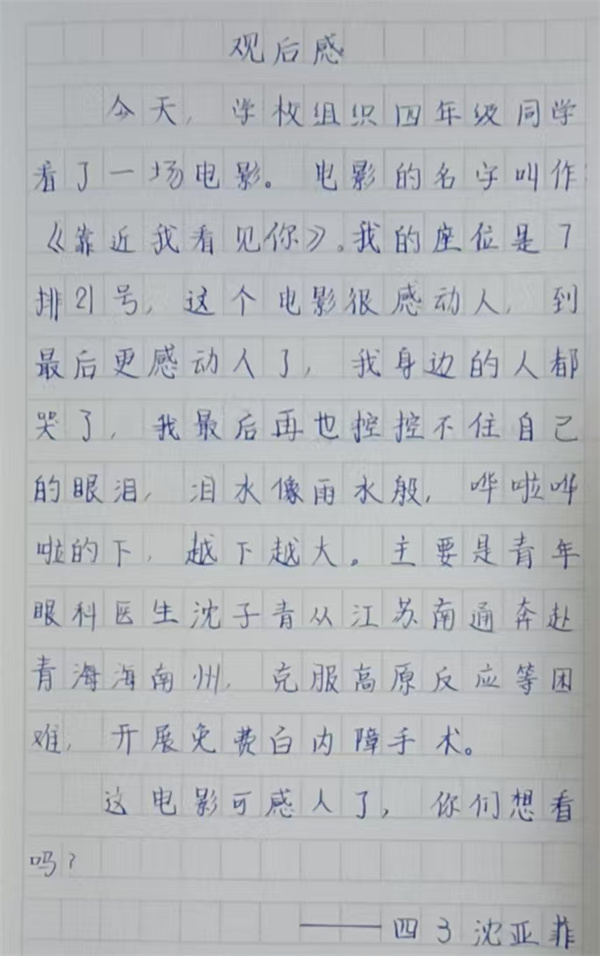 观后感
今天，学校组织四年级同学
看了一场电影。电影的名字叫作
《靠近我看见你》。我的座位是7
排21号，这个电影很感动人，到
最后更感动人了，我身边的人都
哭了，我最后再也控控不住自己
的眼泪，泪水像雨水般，哗啦哗
啦的下，越下越大。主要是青年
眼科医生沈子青从江苏南通奔赴
青海海南州，克服高原反应等困
难，开展免费白内障手术。
这电影可感人了，你们想看
吗？
——四3沈亚菲